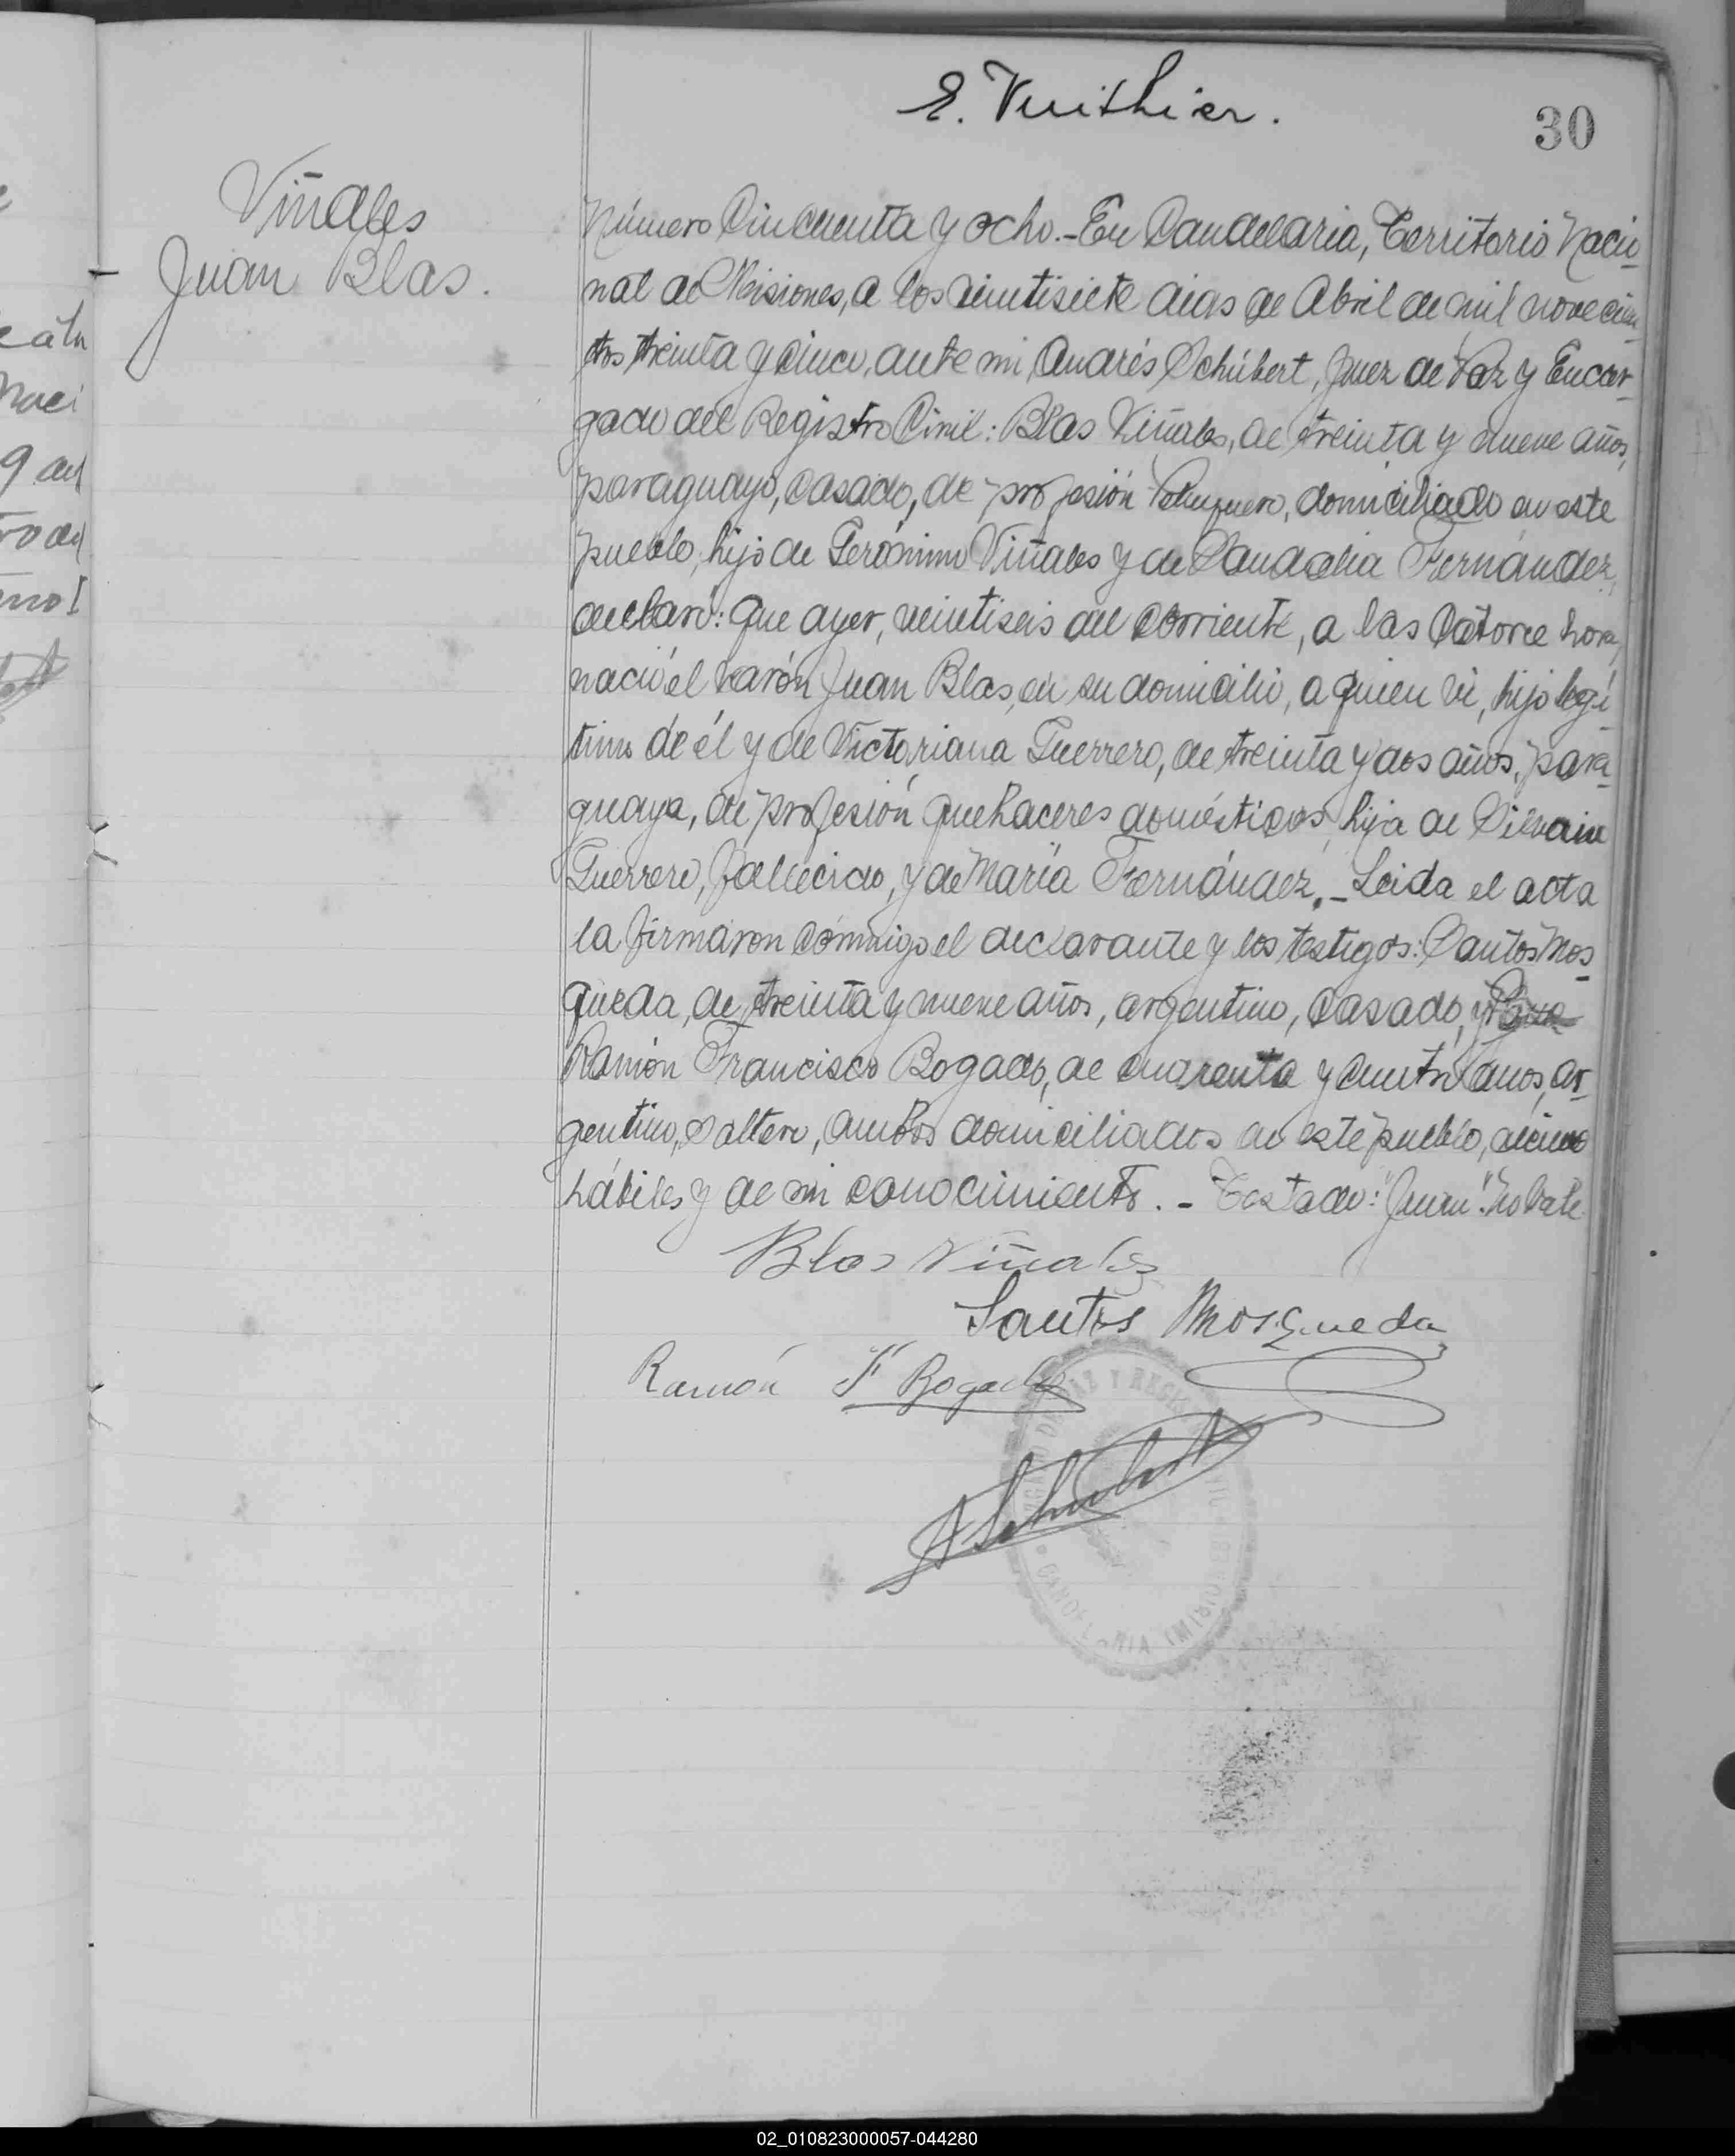 E. Vuithier.
30
Viñales
Juan Blas.
Número Cincuenta y ocho.- En Candelaria, Territorio Nacio-
nal de Misiones, a los veintisiete dias de Abril de mil novecien-
tos treinta y cinco, ante mi, Andrés Schúbert, Juez de Paz y Encar-
gado del Registro Civil: Blas Viñales, de treinta y nueve años,
paraguayo, casado, de profesión Peluquero, domiciliado en este
pueblo, hijo de Gerónimo Viñales y de Fernández,
declaró: Que ayer, veintiseis del corriente, a las catorce horas,
nació el varón Juan Blas, en su domicilio, a quien vi, hijo legí-
timo de él y de Victoriana Guerrero, de treinta y dos años, para-
guaya, de profesión quehaceres domésticos, hija de
Guerrero, fallecido, y de María Fernández.- Leida el acta
la firmaron conmigo el declarante y los testigos: Santos Mos-
queda, de treinta y nueve años, argentino, casado, y
Ramón Francisco Bogado, de cuarenta y cuatro años, ar-
gentino, soltero, ambos domiciliados en este pueblo,
hábiles y de mi conocimiento.- Testado: "Juan". No vale.
Blas Viñales
Santos Mosqueda
Ramón F Bogado
A Schubert
02_010823000057-044280